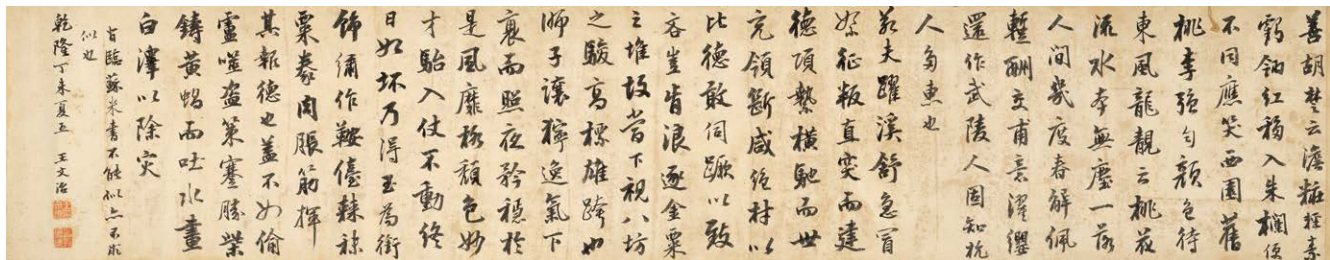 善胡楚云澹粧輕素
鶴翎紅移入朱欄便
不同應笑西園舊
桃李強勻顏色待
東風龍靚云桃花
流水本無塵一落
人間幾度春解佩
蹔酬交甫意濯纓
還作武陵人固知杭
人多惠也
若夫躍溪舒急冒
絮征叛直突而建
德項縶橫馳而世
充領斷咸絕材以
比德敢伺蹶以致
吝豈肯浪逐金粟
之堆故當下視八坊
之駿高標雄跨而
師子讓獰逸氣下
衰而照夜矜穩於
是風靡格頹色妙
才駘入仗不動終
日如坏乃得玉為銜
飾繡作鞍儓棘秣
粟豢肉脹筋揮
其報德也蓋不如偷
盧噬盜策蹇勝柴
鑄黃蝸而吐水畫
白澤以除灾
右臨蘇米書不能似亦不求
似也
乾隆丁未夏五 王文治